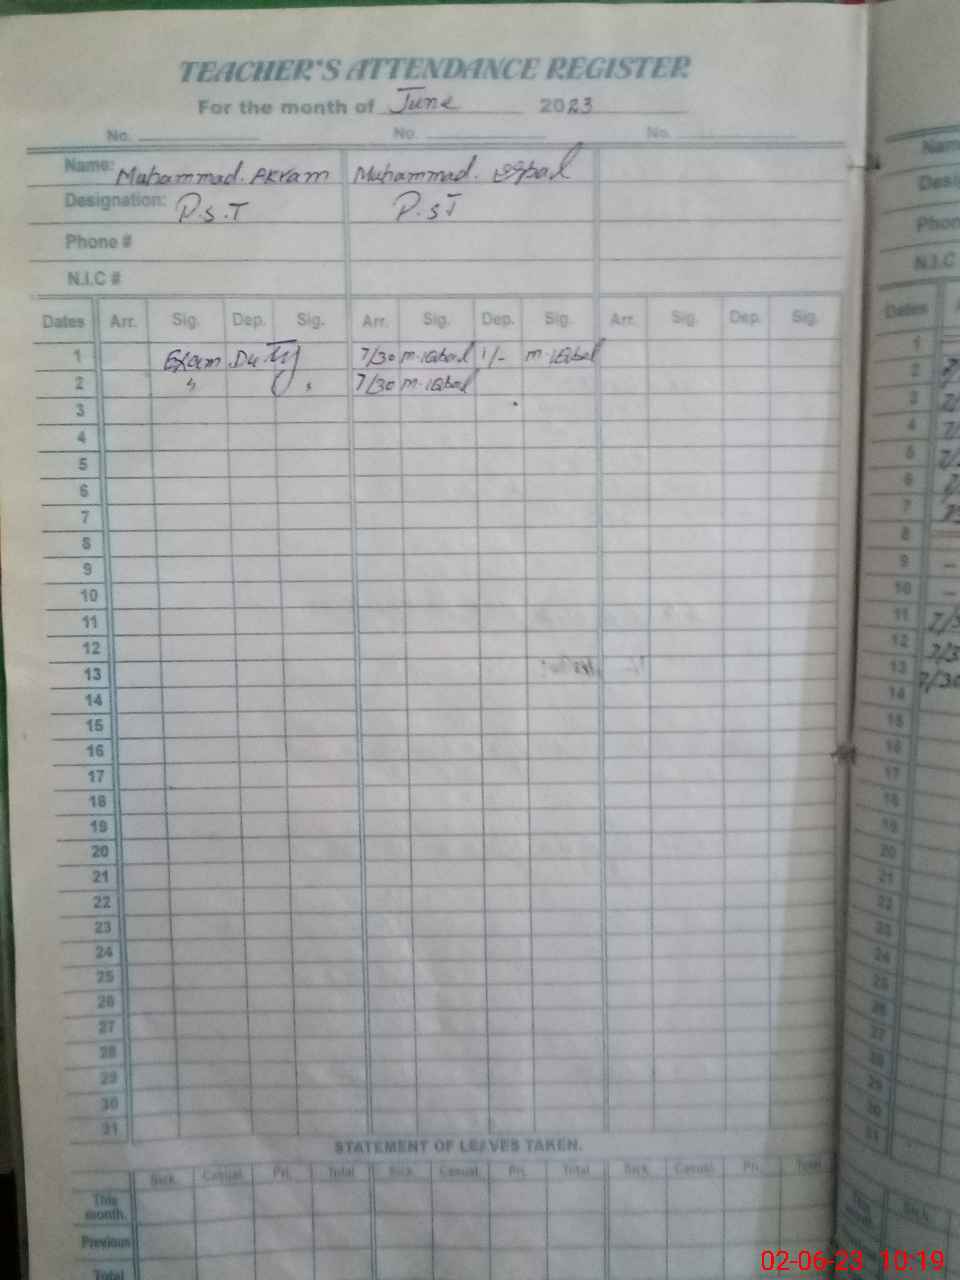 TEACHER'S ATTENDANCE REGISTER
For the month of June 2023
No. No. No.
Name: Muhammad. Akram Muhammad. Iqbal
Designation: P.S.T P.ST
Phone #
N.I.C #
Dates Arr. Sig. Dep. Sig. Arr. Sig. Dep. Sig. Arr. Sig. Dep. Sig.
1 Exam Duty 7/30 M.Iqbal 1/- M.Iqbal
2 " " 7/30 M.Iqbal
3
4
5
6
7
8
9
10
11
12
13
14
15
16
17
18
19
20
21
22
23
24
25
26
27
28
29
30
31
STATEMENT OF LEAVES TAKEN.
Sick. Casual. Pri. Total Sick. Casual. Pri. Total Sick. Casual. Pri. Total
This month.
Previous
Total
Dates
1
2
3
4
5
6
7
8
9
10
11
12
13 7/30
14
15
16
17
18
19
20
21
22
23
24
25
26
27
28
29
30
31
Sick.
02-06-23 10:19